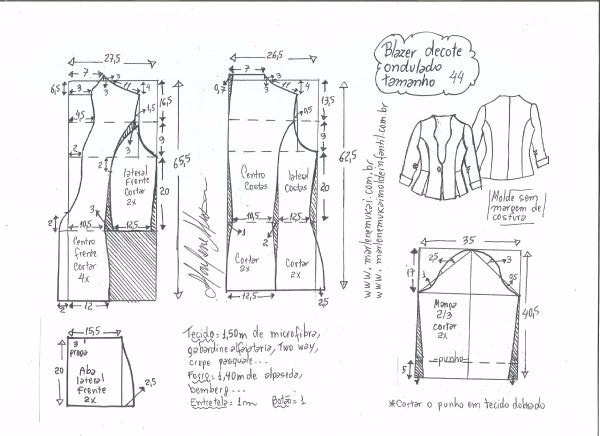 Blazer decote
ondulado
tamanho 44
27,5
7
3
11
4
6,5
3
4,5
16,5
4,5
9
3
2
2
20
65,5
lateral
Frente
Cortar
2x
3
10,5
12,5
2
Centro
frente
Cortar
4x
2
12
26,5
7
0,7
3
11
4
0,5
13,5
9
20
62,5
Centro
Costas
lateral
Costas
10,5
12,5
1
2
Cortar
2x
Cortar
2x
12,5
2,5
www.marlenemukai.com.br
www.marlenemukaimoldeinfantil.com.br
Molde sem
margem de
costura
35
17
2,5
3
1
0,5
Manga
2/3
cortar
2x
40,5
punho
5
*Cortar o punho em tecido dobrado
15,5
3
prega
20
Aba
lateral
frente
2x
2,5
Tecido = 1,50m de microfibra,
gabardine alfaiataria, Two way,
crepe pasquale...
Forro = 1,40m de alpaseda,
bemberg...
Entretela = 1m Botão = 1